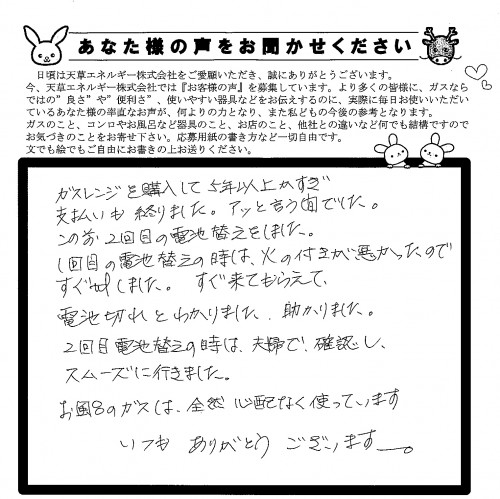 あなた様の声をお聞かせください
日頃は天草エネルギー株式会社をご愛顧いただき、誠にありがとうございます。
今、天草エネルギー株式会社では『お客様の声』を募集しています。より多くの皆様に、ガスなら
ではの”良さ”や”便利さ”、使いやすい器具などをお伝えするのに、実際に毎日お使いいただい
ているあなた様の率直なお声が、何よりの力となり、また私どもの今後の参考となります。
ガスのこと、コンロやお風呂など器具のこと、お店のこと、他社との違いなど何でも結構ですので
お気づきのことをお寄せ下さい。応募用紙の書き方など一切自由です。
文でも絵でもご自由にお書きの上お送りください。
ガスレンジを購入して5年以上かすぎ
支払いも終りました。アッと言う間でした。
この前2回目の電池替えをしました。
1回目の電池替えの時は、火の付きが悪かったので
すぐtelしました。すぐ来てもらえて、
電池切れとわかりました、助かりました。
2回目電池替えの時は、夫婦で、確認し、
スムーズに行きました。
お風ろのガスは、全然心配なく使っています
いつもありがとうございます。